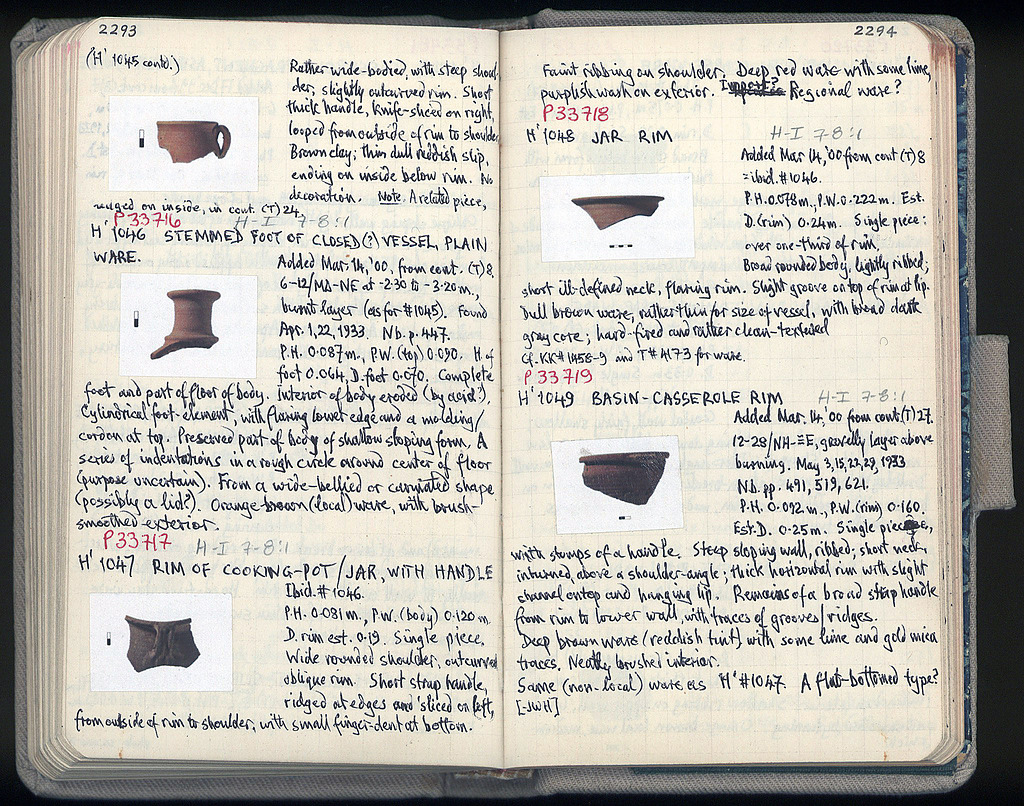 2293
(H' 1045 contd.)
Rather wide-bodied, with steep shoul-
der, slightly outcurved rim. Short
thick handle, knife-sliced on right,
looped from outside of rim to shoulder.
Brown clay; thin dull reddish slip,
ending on inside below rim. No
decoration. Note A related piece,
on inside, in cont. (T) 24.
P 33716 H-I 7-8:1
H' 1046 STEMMED FOOT OF CLOSED(?) VESSEL, PLAIN
WARE.
Added Mar. 14, '00, from cont. (T) 8.
6-12/MΔ-NE at -2.30 to -3.20m.,
burnt layer (as for #1045). Found
Apr. 1, 22, 1933. Nb. p. 447.
P.H. 0.087m., P.W. (top) 0.090. H. of
foot 0.064, D. foot 0.070. Complete
foot and part of floor of body. Interior of body eroded (by acid?).
Cylindrical foot-element, with flaring lower edge and a molding/
cordon at top. Preserved part of body of shallow sloping form. A
series of indentations in a rough circle around center of floor
(purpose uncertain). From a wide-bellied or carinated shape
(possibly a lid?). Orange-brown (local) ware, with brush-
smoothed exterior.
P 33717 H-I 7-8:1
H' 1047 RIM OF COOKING-POT/JAR, WITH HANDLE
Ibid. # 1046.
P.H. 0.081m., P.W. (body) 0.120 m.
D. rim est. 0.19. Single piece.
Wide rounded shoulder, outcurved
oblique rim. Short strap handle,
ridged at edges and sliced on left,
from outside of rim to shoulder, with small finger-dent at bottom.
2294
Faint ribbing on shoulder. Deep red ware with some lime,
purplish wash on exterior. Regional ware?
P 33718
H' 1048 JAR RIM H-I 7-8:1
Added Mar. 14, '00 from cont (T) 8
= ibid. #1046.
P.H. 0.078m., P.W. 0.222m. Est.
D. (rim) 0.24m. Single piece:
over one-third of rim.
Broad rounded body, lightly ribbed;
short ill-defined neck, flaring rim. Slight groove on top of rim at lip.
Dull brown ware, rather thin for size of vessel, with broad dark
gray core; hard-fired and rather clean-textured
Cf. KK# 1458-9 and T# 4173 for ware.
P 33719
H' 1049 BASIN-CASSEROLE RIM H-I 7-8:1
Added Mar. 14, '00 from cont (T) 27.
12-28/NH-ΞE, gravelly layer above
burning. May 3, 15, 22, 29, 1933
Nb. pp. 491, 519, 621.
P.H. 0.092 m., P.W. (rim) 0.160.
Est. D. 0.25m. Single piece,
with stumps of a handle. Steep sloping wall, ribbed; short neck,
inturned, above a shoulder-angle; thick horizontal rim with slight
channel on top and hanging lip. Remains of a broad strap handle
from rim to lower wall, with traces of grooves/ridges.
Deep brown ware (reddish tint) with some lime and gold mica
traces. Neatly brushed interior.
Same (non-local) ware as H' #1047. A flat-bottomed type?
[-JWH]